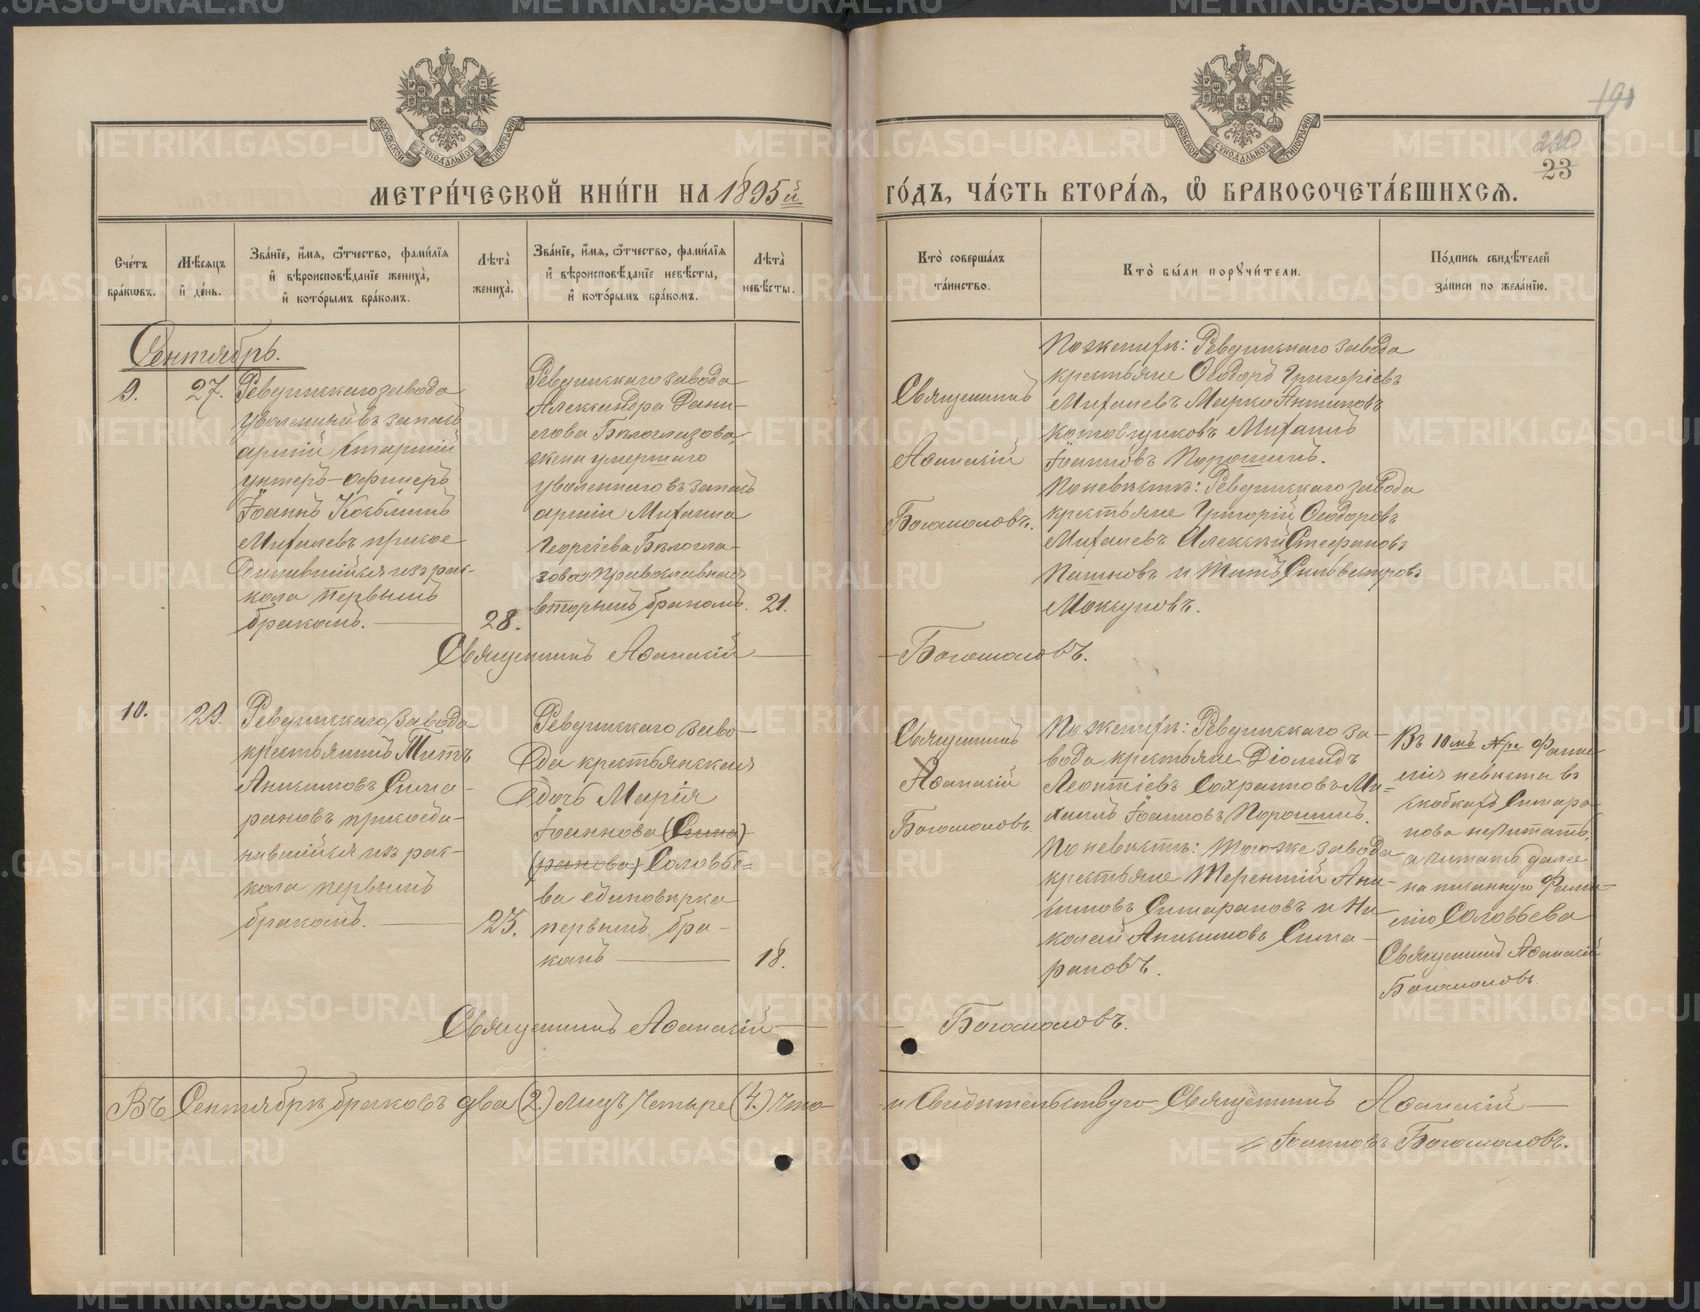 МЕТРИ́ЧЕСКОЙ КНИ́ГИ НА 1895й ГО́ДЪ, ЧА́СТЬ ВТОРА́Я, Ѡ БРАКОСОЧЕТА́ВШИХСЯ.
191
220
23
МОСКОВСКОЙ СѴНОДАЛЬНОЙ ТИПОГРАФІИ
МОСКОВСКОЙ СѴНОДАЛЬНОЙ ТИПОГРАФІИ
Сче́тъ
бра́кѡвъ.
Мѣ́сяцъ
и҆ де́нь.
Зва́нїе, и҆́мя, ѻ҆́тчество, фами́лїя
и҆ вѣроисповѣ́данїе жениха̀,
и҆ кото́рымъ бра́комъ.
Лѣ́та̀
жениха̀.
Зва́нїе, и҆́мя, ѻ҆́тчество, фами́лїя
и҆ вѣроисповѣ́данїе невѣ́сты,
и҆ кото́рымъ бра́комъ.
Лѣ́та̀
невѣ́сты.
Кто̀ соверша́лъ
та́инство.
Кто̀ бы́ли порꙋчи́тели.
По́дпись свидѣ́телей
за́писи по жела́нїю.
Сентябрь.
9.
27.
Ревдинскаго завода
уволенный въ запасъ
армiи старшiй
унтеръ-офицеръ
Iоаннъ Косьминъ
Михалевъ присое
динившiйся изъ рас-
кола первымъ
бракомъ.
28.
Ревдинскаго завода
Александра Дани-
лова Бѣлоглазова,
жена умершаго
уволеннаго въ запасъ
армiи Михаила
Георгiева Бѣлогла-
зова православная
вторымъ бракомъ.
21.
Священникъ
Аѳанасiй
Богомоловъ.
По женихѣ: Ревдинскаго завода
крестьяне Ѳеодоръ Григорiевъ
Михалевъ Марко Антиповъ
Котовщиковъ Михаилъ
Iоанновъ Порошинъ.
По невѣстѣ: Ревдинскаго завода
крестьяне Григорiй Ѳеодоровъ
Михалевъ Алексѣй Стефановъ
Пашновъ и Титъ Сильвестровъ
Мокруновъ.
Священникъ Аѳанасiй Богомоловъ.
10.
29.
Ревдинскаго завода
крестьянинъ Титъ
Анисимовъ Сима-
рановъ присоеди-
нившiйся изъ рас-
кола первымъ
бракомъ.
23.
Ревдинскаго заво-
да крестьянская
дочь Марiя
Iоаннова (Сима)
(ранова) Соловье-
ва единовѣрка
первымъ бра-
комъ
18.
Священникъ
Аѳанасiй
Богомоловъ.
По женихѣ: Ревдинскаго за-
вода крестьяне Дiомидъ
Леонтiевъ Сохранновъ Ми-
хаилъ Iоанновъ Порошинъ.
По невѣстѣ: того же завода
крестьяне Терентiй Ани-
симовъ Симарановъ и Ни-
колай Анисимовъ Сима-
рановъ.
Въ 10мъ №ре фами
лiя невѣсты въ
скобкахъ Симара-
нова не читать,
а читать далѣе
написанную фами-
лiю Соловьева
Священникъ Аѳанасiй
Богомоловъ.
Священникъ Аѳанасiй Богомоловъ.
Въ Сентябрѣ браковъ два (2.) лицъ четыре (4.) что
и свидѣтельствую Священникъ Аѳанасiй
Iоанновъ Богомоловъ.
METRIKI.GASO-URAL.RU